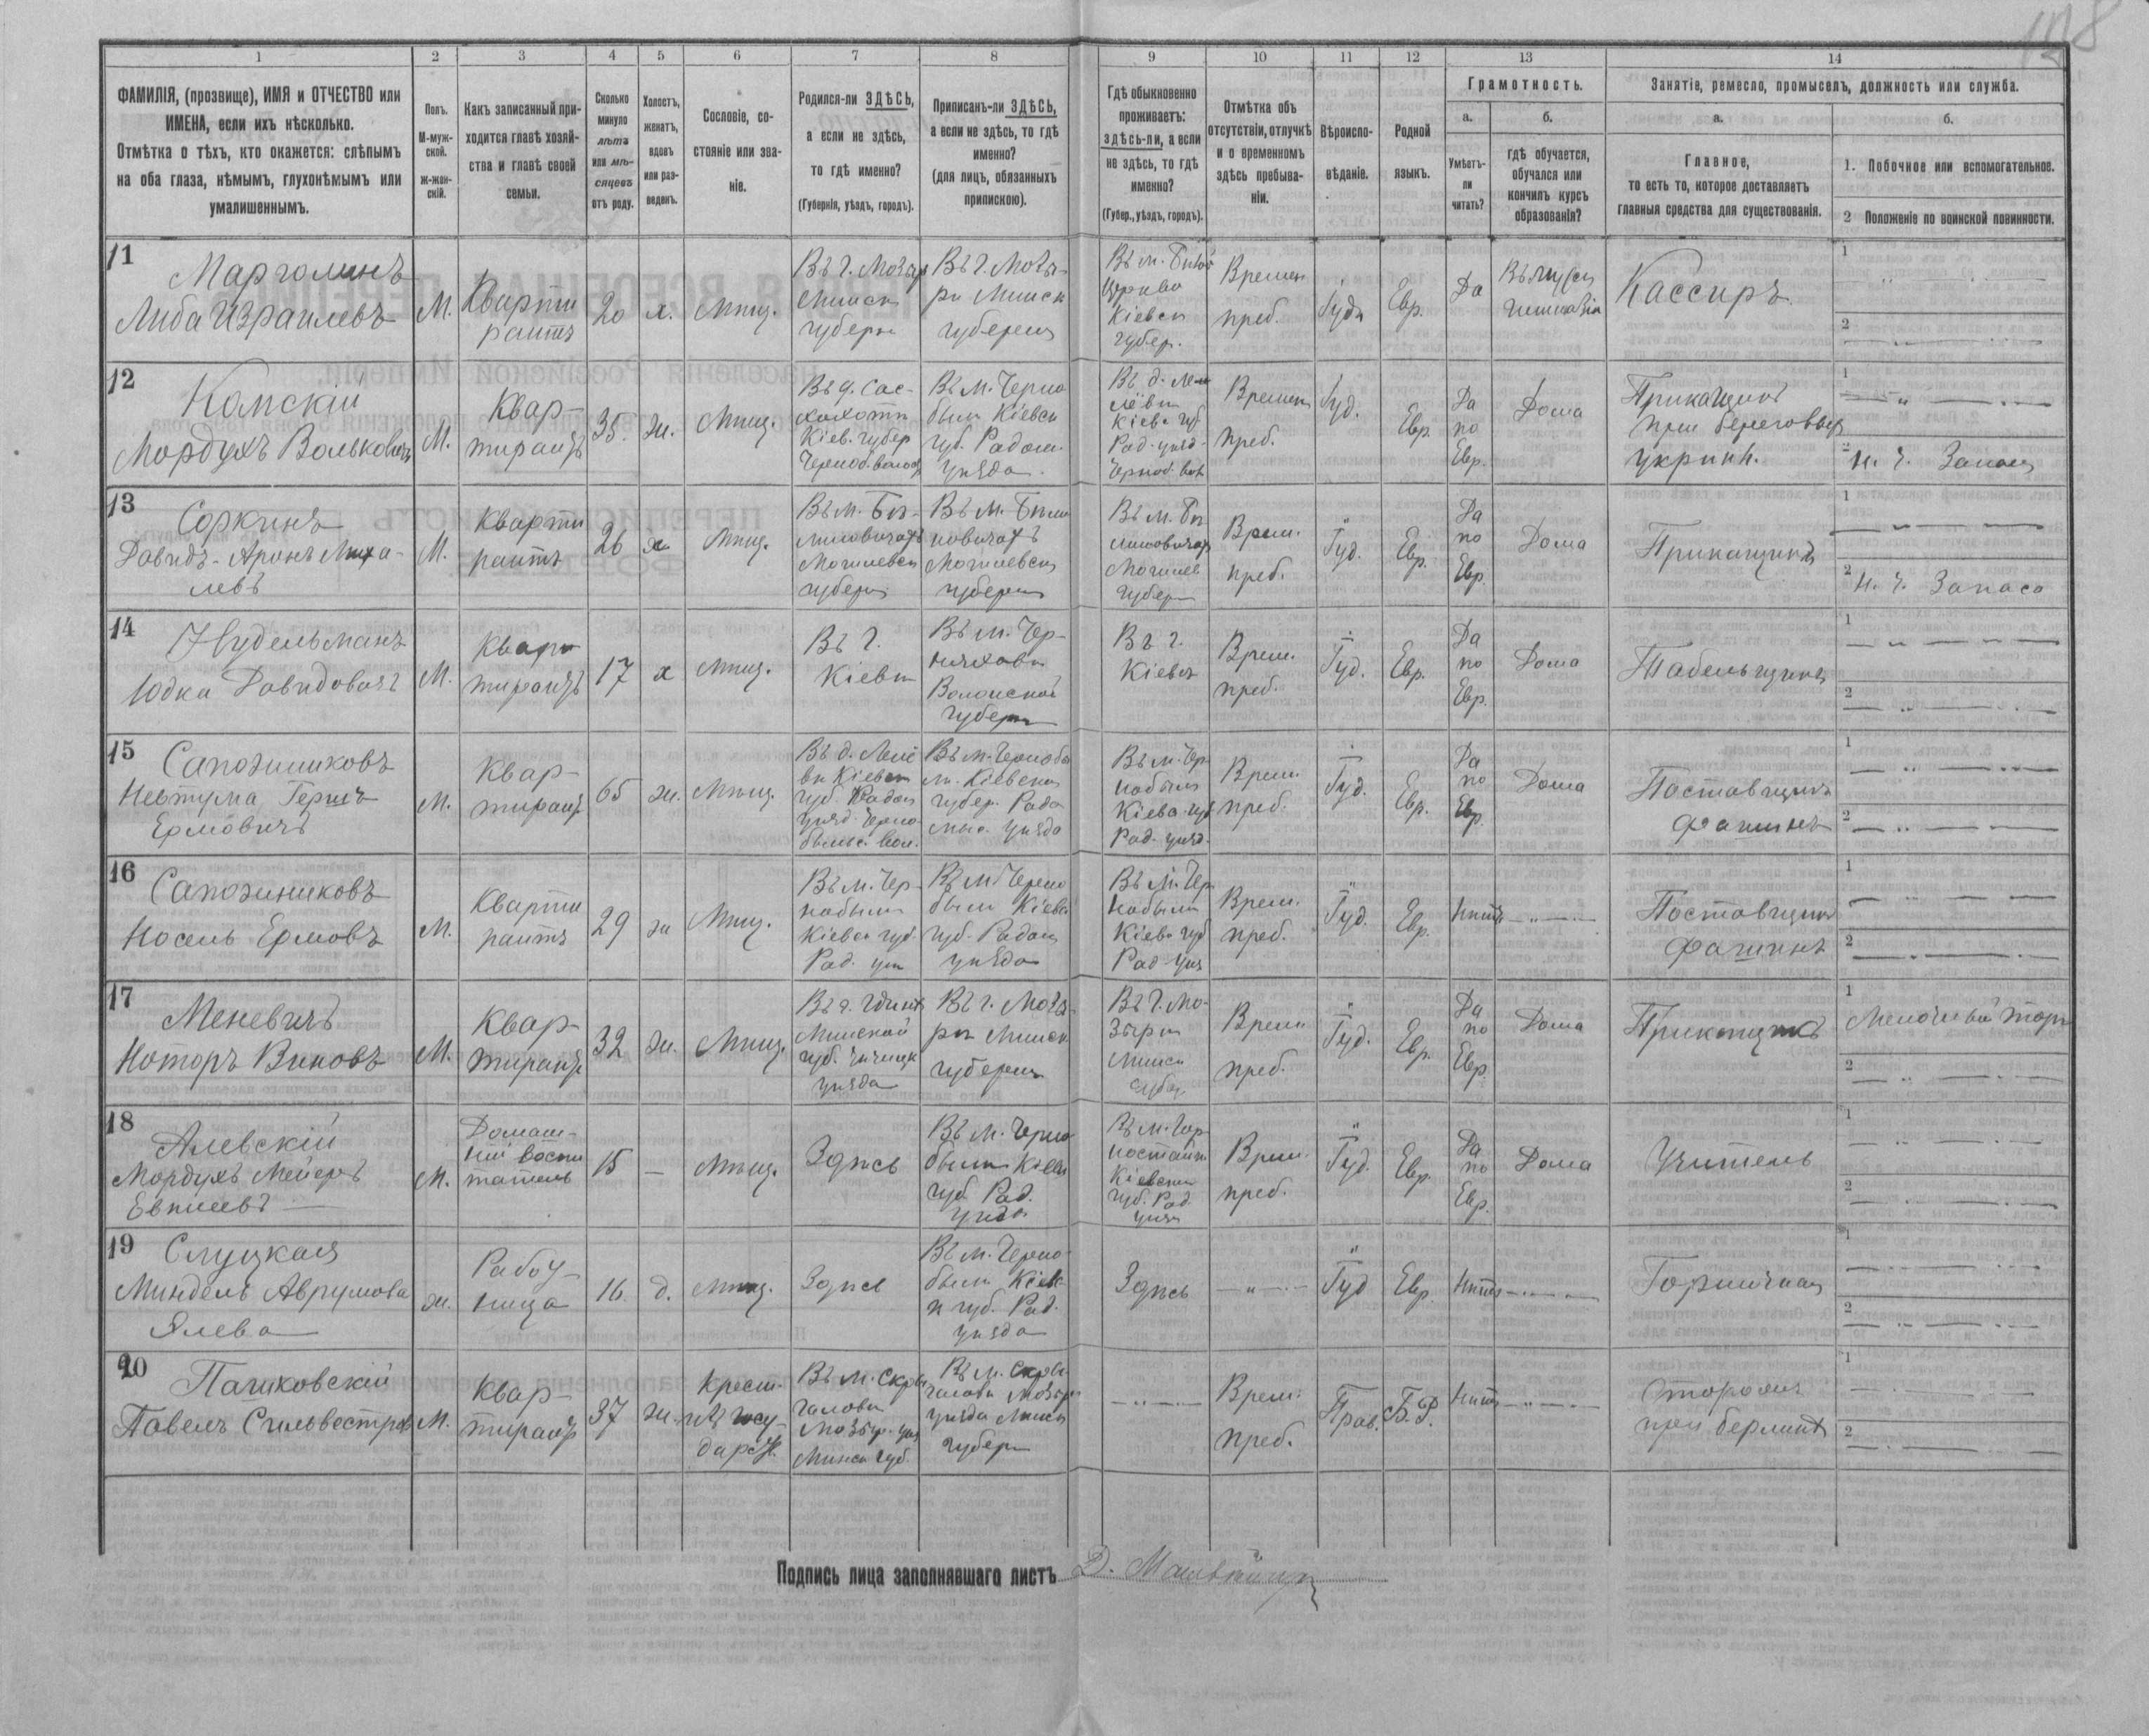 148
1 2 3 4 5 6 7 8 9 10 11 12 13 14
ФАМИЛІЯ, (прозвище), ИМЯ и ОТЧЕСТВО или
ИМЕНА, если ихъ нѣсколько.
Отмѣтка о тѣхъ, кто окажется: слѣпымъ
на оба глаза, нѣмымъ, глухонѣмымъ или
умалишеннымъ.
Полъ.
М-муж-
ской.
ж-жен-
скій.
Какъ записанный при-
ходится главѣ хозяй-
ства и главѣ своей
семьи.
Сколько
минуло
лѣтъ
или мѣ-
сяцевъ
отъ роду.
Холостъ,
женатъ,
вдовъ
или раз-
веденъ.
Сословіе, со-
стояніе или зва-
ніе.
Родился-ли ЗДѢСЬ,
а если не здѣсь,
то гдѣ именно?
(Губернія, уѣздъ, городъ).
Приписанъ-ли ЗДѢСЬ,
а если не здѣсь, то гдѣ
именно?
(для лицъ, обязанныхъ
припискою).
Гдѣ обыкновенно
проживаетъ:
здѣсь-ли, а если
не здѣсь, то гдѣ
именно?
(Губер., уѣздъ, городъ).
Отмѣтка объ
отсутствіи, отлучкѣ
и о временномъ
здѣсь пребыва-
ніи.
Вѣроиспо-
вѣданіе.
Родной
языкъ.
Грамотность.
а.
Умѣетъ-
ли
читать?
б.
гдѣ обучается,
обучался или
кончилъ курсъ
образованія?
Занятіе, ремесло, промыселъ, должность или служба.
а.
Главное,
то есть то, которое доставляетъ
главныя средства для существованія.
б.
1. Побочное или вспомогательное.
2 Положеніе по воинской повинности.
11
Марголинъ
Либа Израилевъ
М.
Кварти
рантъ
20
х.
Мѣщ.
Въ г. Мозыр
Минск
губерн
Въ г. Мозы-
рѣ Минск
губерни
Въ м.
Церква
Кіевск
губер.
Времен
преб.
Іуд
Евр.
Да
Кассиръ
1
2
12
Камскій
Мордухъ Вольковичъ
М.
Квар-
тирантъ
35.
ж.
Мѣщ.
Кіев. губер
Въ м. Черно
былѣ Кіевск
губ. Радом.
уѣзда
Въ д.
Кіев. губ
Рад. уѣзд.
Времен
преб.
Іуд.
Евр.
Да
по
Евр.
Дома
Прикащикъ
при береговых
укрѣпл.
1
2
н. ч. Запаса
13
Соркинъ
Давидъ-Аронъ Миха-
левъ
М.
Кварти
рантъ
26
х
Мѣщ.
Въ м. Бѣ-
линовичахъ
Могилевск
губерн
Въ м. Бѣли
новичахъ
Могилевск
губерни
Въ м. Бѣ
линовичах
Могилев
губерн
Врем.
преб.
Іуд.
Евр.
Да
по
Евр.
Дома
Прикащикъ
1
2
н. ч. Запаса
14
Нудельманъ
Юдка Давидовичъ
М.
Квар
тирантъ
17
х
Мѣщ.
Въ г.
Кіевѣ
Въ м. Чер-
няховѣ
Волынской
губерни
Въ г.
Кіевѣ
Врем.
преб.
Іуд.
Евр.
Да
по
Евр.
Дома
Табельщикъ
1
2
15
Сапожниковъ
Гершъ
Ермовичъ
М.
Квар-
тирант
65
ж.
Мѣщ.
Въ д.
Кіевск
губ. Радом
уѣзд. Черно-
быльс. вол.
Въ м. Чернобы
лѣ Кіевской
губер. Радо
мыс. уѣзда
Въ м. Чер
нобылѣ
Кіевс. губ
Рад. уѣзд.
Врем.
преб.
Іуд.
Евр.
Да
по
Евр.
Дома
Поставщикъ
Фашинъ
1
2
16
Сапожниковъ
Носель Ермовъ
М.
Кварти
рантъ
29
ж
Мѣщ.
Въ м. Чер-
нобылѣ
Кіевск губ.
Рад. уѣз
Въ м. Черно
былѣ Кіевс
губ. Радом
уѣзда
Въ м. Чер
нобылѣ
Кіевс губ
Рад. уѣз
Врем.
преб.
Іуд.
Евр.
Нѣтъ
Поставщикъ
Фашинъ
1
2
17
Меневичъ
Ноторъ
М.
Квар-
тирант
32
ж.
Мѣщ.
Минской
губ.
уѣзда
Въ г. Мозы-
рѣ Минск
губерни
Въ г. Мо-
зырѣ
Минск
губер.
Врем
преб.
Іуд.
Евр.
Да
по
Евр.
Дома
Прикащикъ
1
Мелочный торг
2
18
Алевскій
Мордухъ Мейеръ
М.
Домаш-
ній воспи
татель
15
—
Мѣщ.
Здѣсь
Въ м. Черно
былѣ Кіевс
губ. Рад.
уѣзда
Кіевской
губ. Рад.
уѣзд
Врем.
преб.
Іуд.
Евр.
Да
по
Евр.
Дома
Учитель
1
2
19
Слуцкая
Миндель Аврумова
Ялева
ж.
Работ-
ница
16.
д.
Мѣщ.
Здѣсь
Въ м. Черно-
былѣ Кіевс
губ. Рад.
уѣзда
Здѣсь
Іуд
Евр.
Нѣтъ
Горничная
1
2
20
Пашковскій
Павелъ Сильвестров
М.
Квар-
тирант
37
ж.
Крест.
Госу-
дарст.
Въ м. Скры
галовѣ
Мозыр. уѣз
Минск губ.
Въ м. Скры-
галовѣ Мозыр
уѣзда Минск
губерн
Врем.
преб.
Прав.
Б.Р.
Нѣтъ
Сторожъ
при
1
2
Подпись лица заполнявшаго листъ